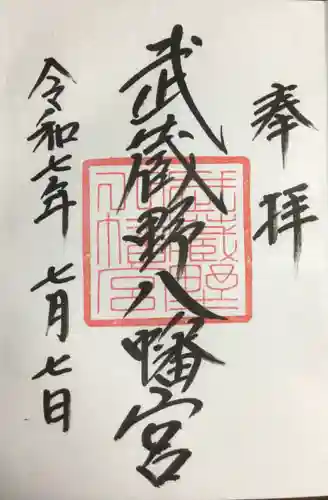 奉拝
武蔵野八幡宮
武蔵野
八幡宮
令和七年 七月七日